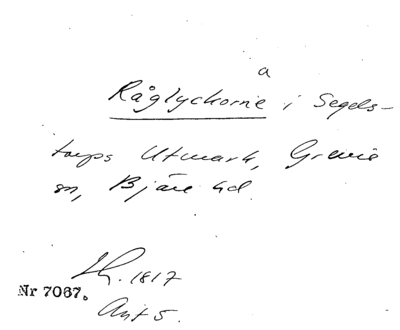 a
Råglyckorne i Segels-
torps Utmark, Grevie
sn, Bjäre hd.
Lh. 1817
Nr 7067.
Akt 5.